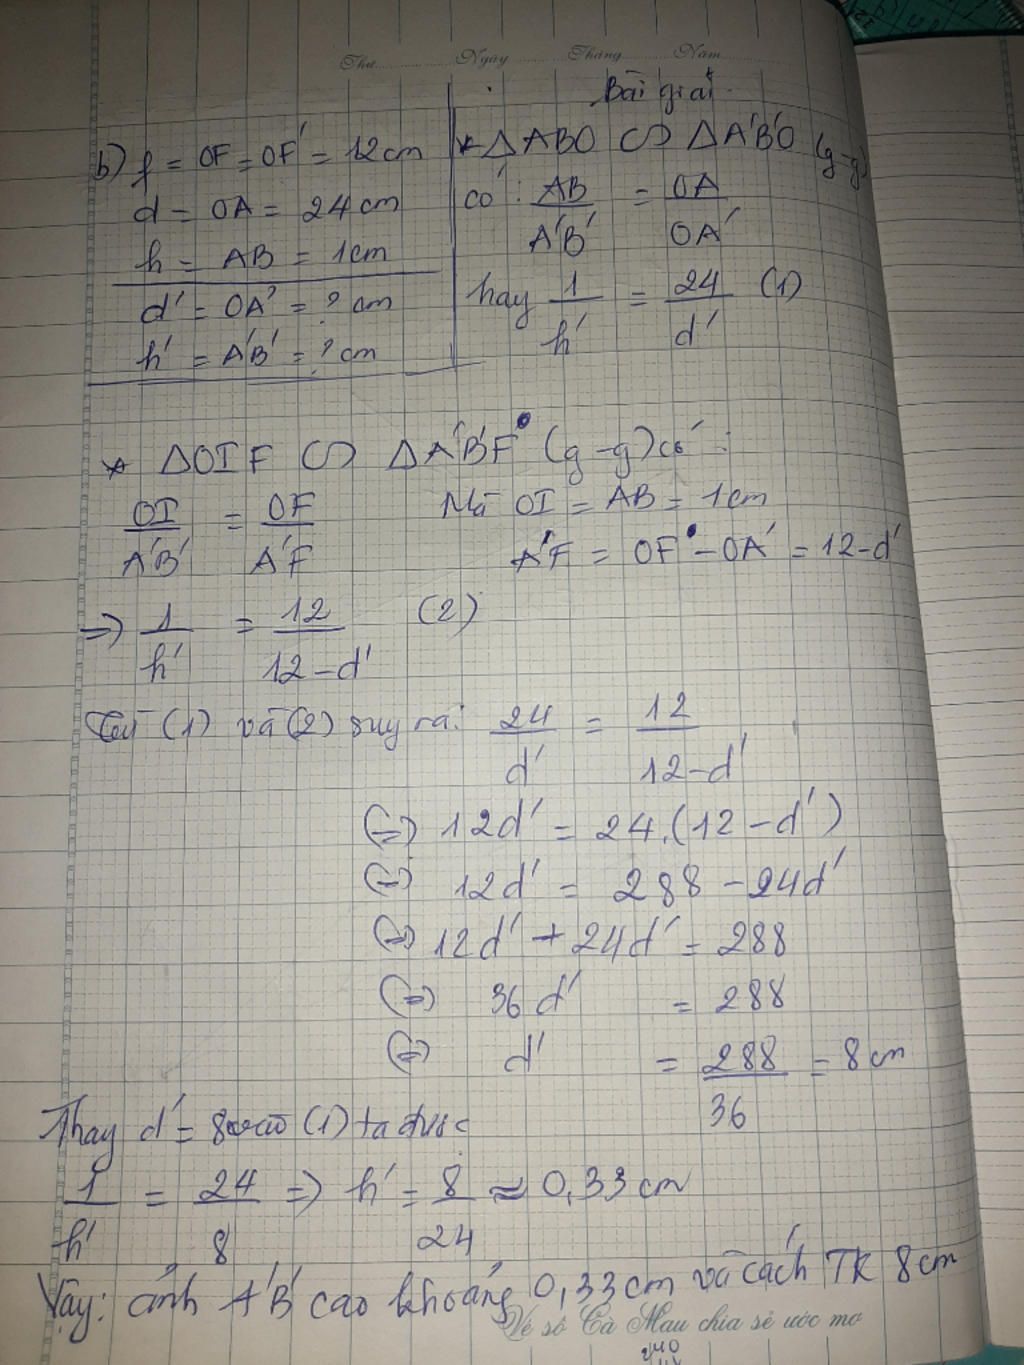 Thứ Ngày Tháng Năm
Bài giải
b) f = OF = OF' = 12cm
d = OA = 24cm
h = AB = 1cm
d' = OA' = ? cm
h' = A'B' = ? cm
* ΔABO ∽ ΔA'B'O (g-g)
có: AB/A'B' = OA/OA'
hay 1/h' = 24/d' (1)
* ΔOIF ∽ ΔA'B'F (g-g) có:
OI/A'B' = OF/A'F Mà OI = AB = 1cm
A'F = OF - OA' = 12-d'
=> 1/h' = 12/12-d' (2)
Từ (1) và (2) suy ra: 24/d' = 12/12-d'
(=) 12d' = 24.(12-d')
(=) 12d' = 288 - 24d'
(=) 12d' + 24d' = 288
(=) 36d' = 288
(=) d' = 288/36 = 8cm
Thay d' = 8 vào (1) ta được
1/h' = 24/8 => h' = 8/24 ≈ 0,33cm
Vậy: ảnh A'B' cao khoảng 0,33cm và cách TK 8cm
Vé số Cà Mau chia sẻ ước mơ